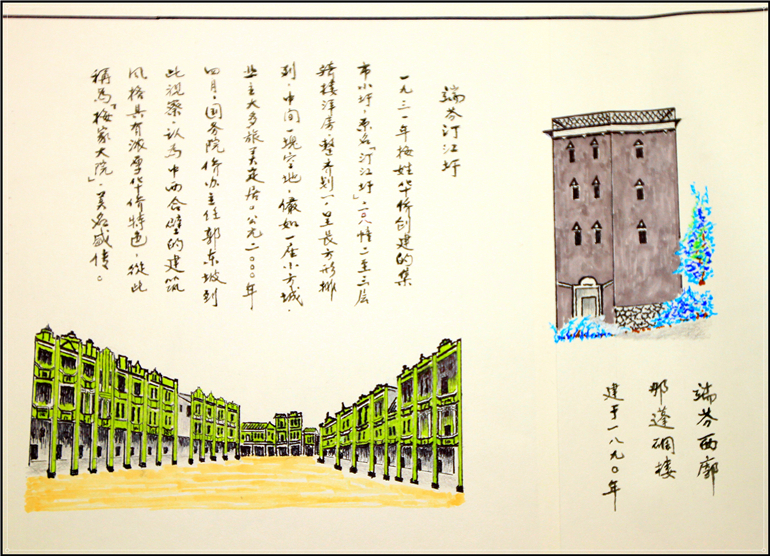 端芬西廓
那蓬碉楼
建于一八九〇年
端芬汀江圩
一九三一年梅姓华侨创建的集
市小圩,原名「汀江圩」一〇八幢二至三层
骑楼洋房整齐划一,呈长方形排
列,中间一块空地,俨如一座小方城,
业主大多旅美定居。公元二〇〇〇年
四月,国务院侨办主任郭东坡到
此视察,认为中西合壁的建筑
风格具有浓厚华侨特色,從此
稱為「梅家大院」,美名盛传。